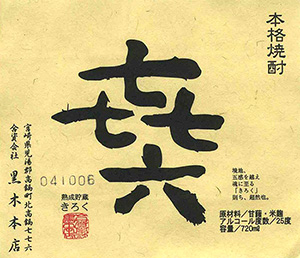 本格焼酎
㐂六
境地。
五感を越え
魂に至る
「きろく」
則ち、超然也。
原材料/甘藷・米麹
アルコール度数/25度
容量/720ml
熟成貯蔵
きろく
041006
宮崎県児湯郡高鍋町北高鍋七七六
合資会社 黒木本店